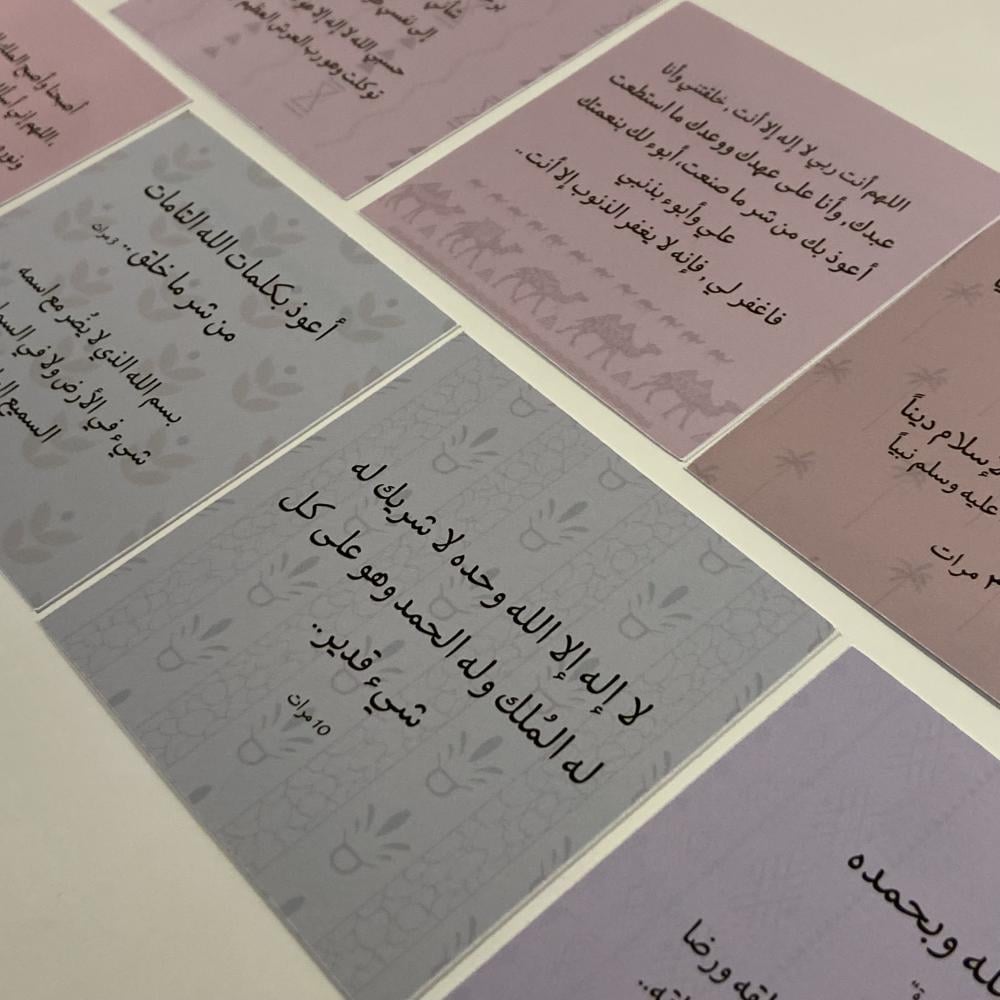 أصبحنا وأصبح الملك
اللهم إني أسألك
شأني
إلى نفسي
حسبي الله لا إله إلا هو
توكلت وهو رب العرش العظيم
اللهم أنت ربي لا إله إلا أنت , خلقتني وأنا
عبدك , وأنا على عهدك ووعدك ما استطعت
أعوذ بك من شر ما صنعت , أبوء لك بنعمتك
علي وأبوء بذنبي
فاغفر لي , فإنه لا يغفر الذنوب إلا أنت ..
أعوذ بكلمات الله التامات
من شر ما خلق .. 3 مرات
بسم الله الذي لا يُضر مع اسمه
شيء في الأرض ولا في
السميع
ديناً
عليه وسلم نبياً
مرات
لا إله إلا الله وحده لا شريك له
له المُلك وله الحمد وهو على كل
شيء قدير..
10 مرات
وبحمده
ورضا